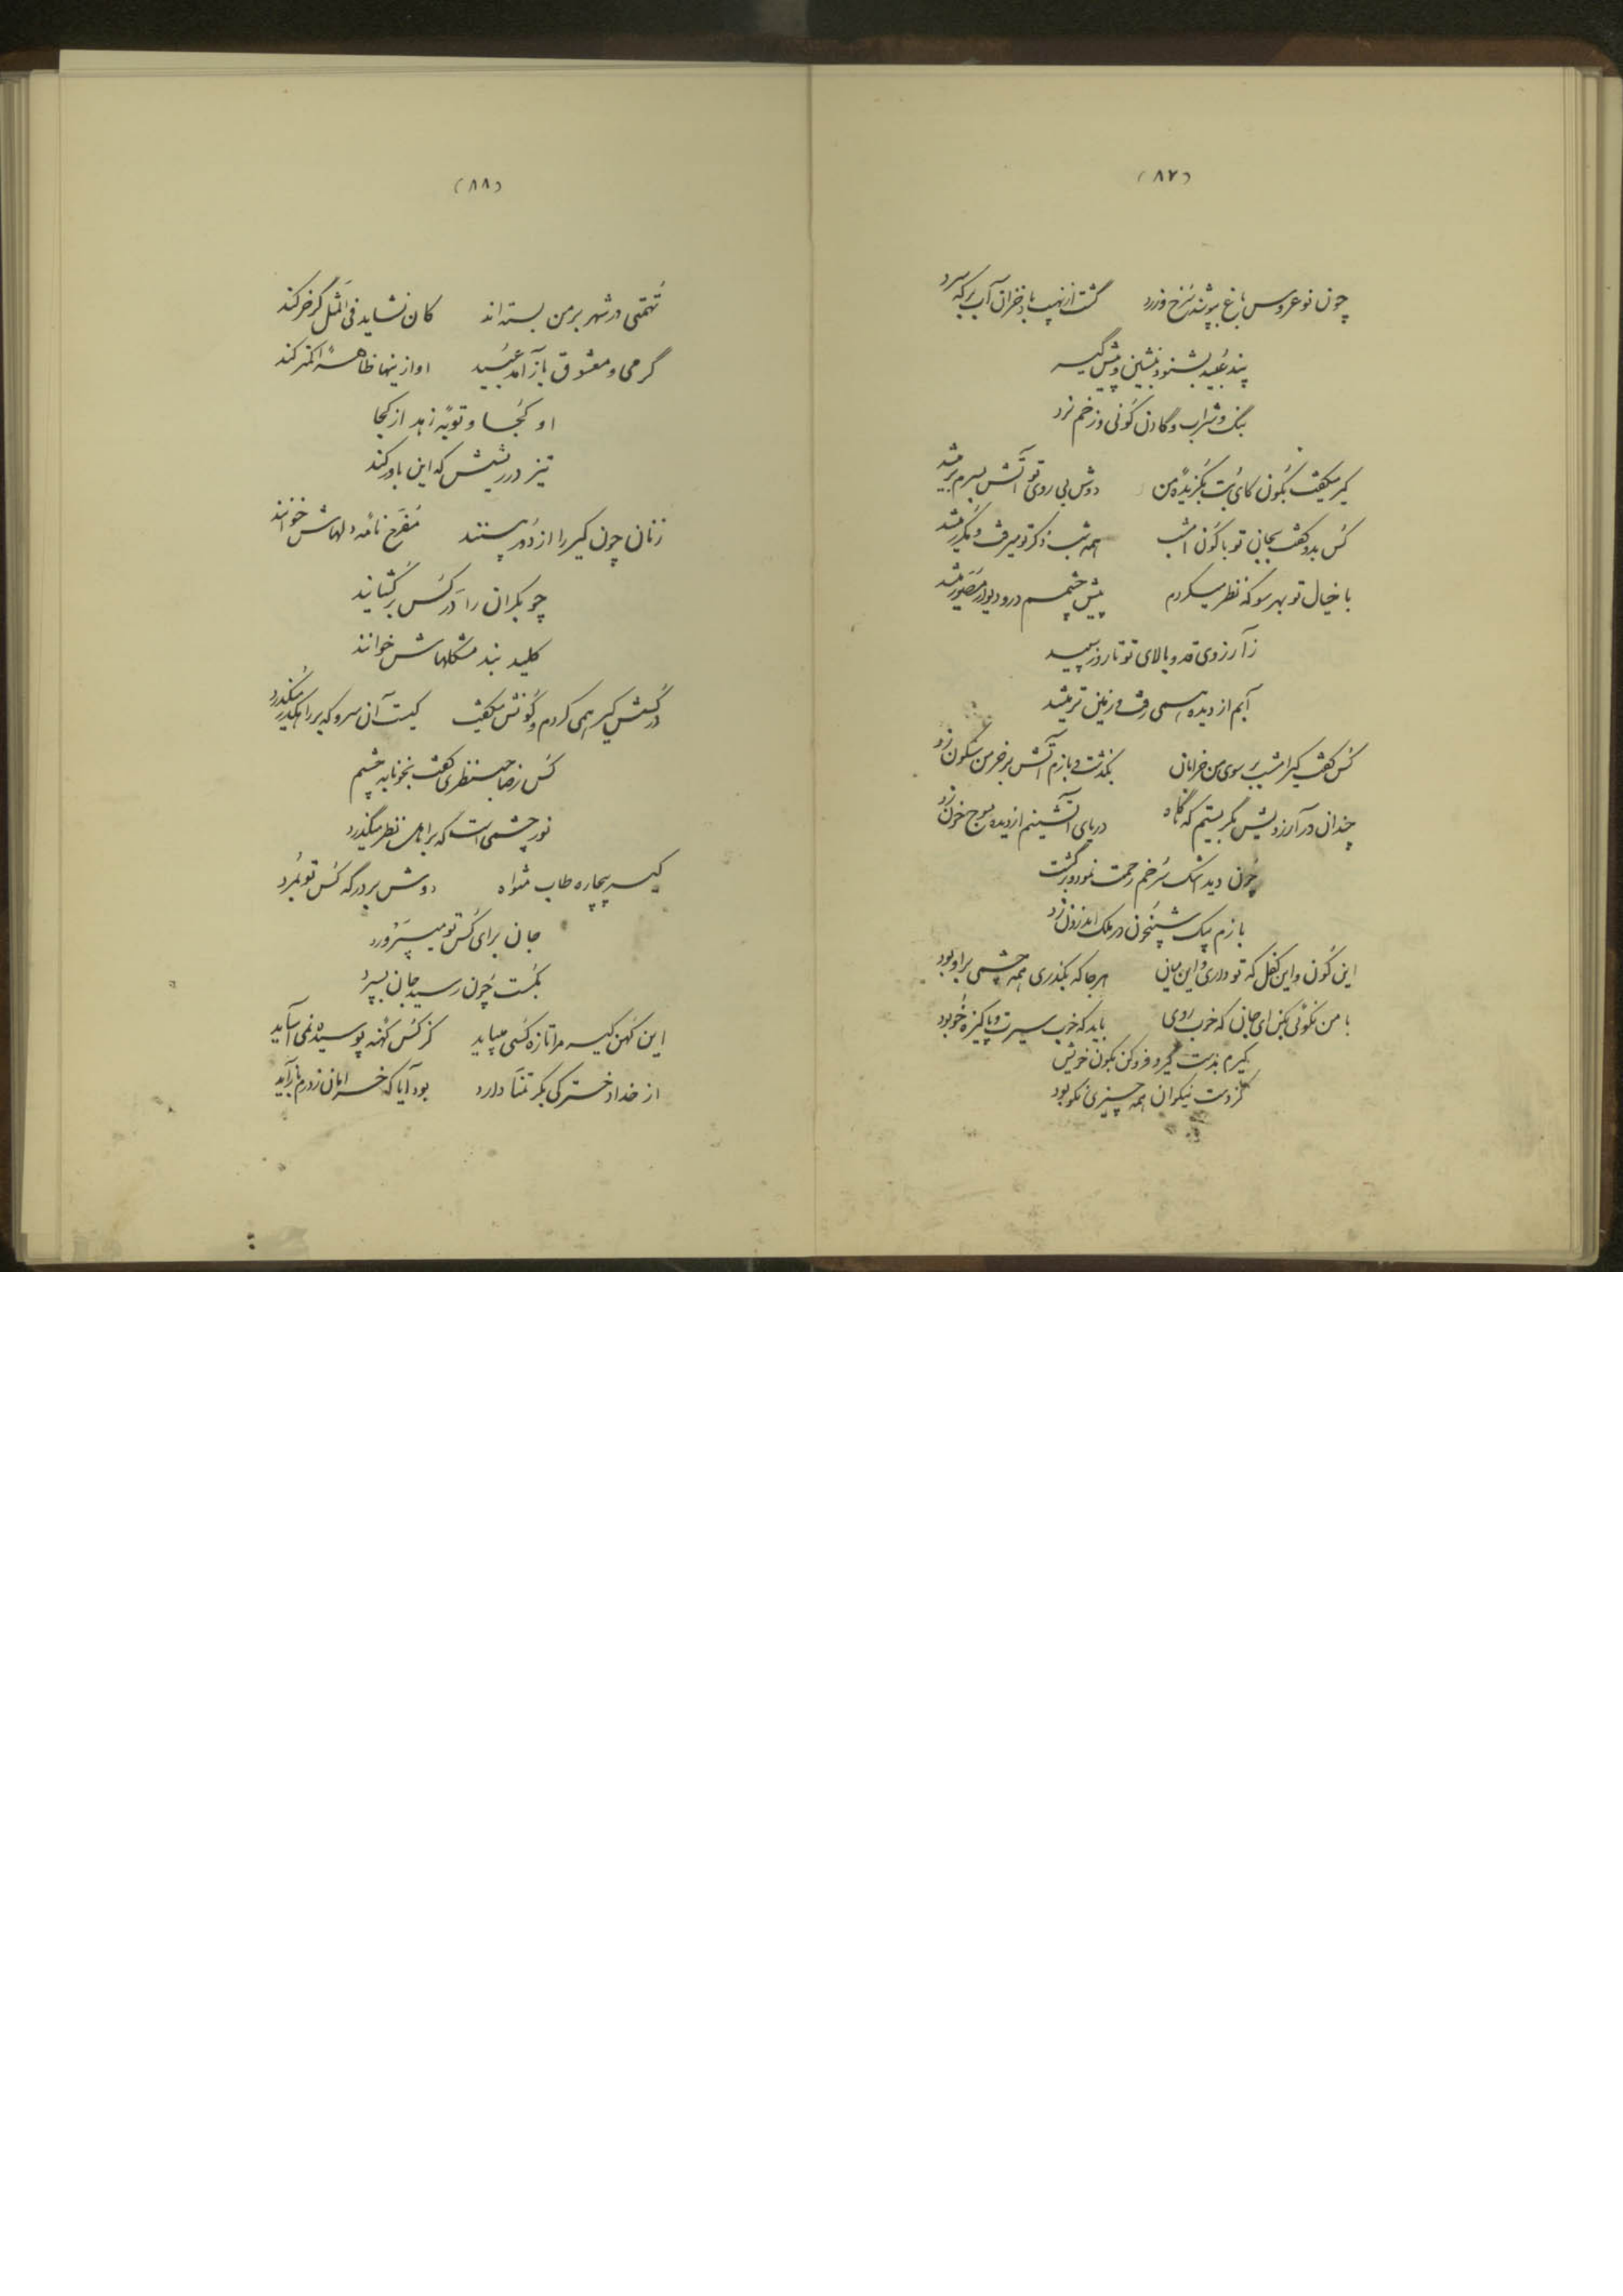 (۸۷)
چون نوعروس باغ بپوشید سرخ و زرد گشت از نهیب باد خزان آب برکه سرد
پند عبید بشنو و بنشین و پیش گیر
بنگ و شراب و گادن کونی و زخم نرد
کیر میگفت بکون کای بت بگزیدهٔ من دوش بی روی تو آتش بسرم بر میشد
کس بدو گفت بجانی تو با کون امشب همه شب ذکر تو میرفت و مکرر میشد
با خیال تو بهر سو که نظر میکردم پیش چشمم در و دیوار مصور میشد
ز آرزوی قد و بالای تو تا روز سپید
آبم از دیده همی رفت و زمین تر میشد
کس گفت کیر امشب بر سوی من خرامان بگذشت و بازم آتش بر خرمن سکون زد
چندان در آرزویش بگریستم که ناگاه دریای آتشینم از دیده موج خون زد
چون دید اشک سرخم رحمت نمود و برگشت
بازم پیک شبیخون در ملک اندرون زد
این کون و این کفل که تو داری و این میان هر جا که بگذری همه چشمی براو بود
با من نکوئی بکن ای جانی که خوب روی باید که خوب سیرت و پاکیزه خو بود
کیرم بدست گیر و فرو کن بکون خویش
کز دست نیکوان همه چیزی نکو بود
(۸۸)
تهمتی در شهر بر من بسته اند کان نشاید فی المثل گر خر کند
گر می و معشوق باز آمد عبید او از ینها ظاهراً کمتر کند
او کجا و توبهٔ زهد از کجا
تیز در ریشش که این باور کند
زنان چون کیر را از دور بینند مفرح نامهٔ دلهاش خوانند
چو بکران را در کس بر گشایند
کلید بند مشکلهاش خوانند
در کسش کیر همی کردم و کونش میگفت کیست آن سرو که بر راهگذر میگذرد
کس ز صاحبنظری گفت بخونابه چشم
نور چشمی است که بر اهل نظر میگذرد
کیر بیچاره طاب مثواه دوش بر درگه کس تو بمرد
جان برای کس تو میپرورد
بکست چون رسید جان بسپرد
این کهن کیر مرا تازه کسی میباید کز کس کهنه پوسیده نمی آساید
از خدا دخترکی بکر تمنا دارد بود آیا که خرامان ز درم باز آید